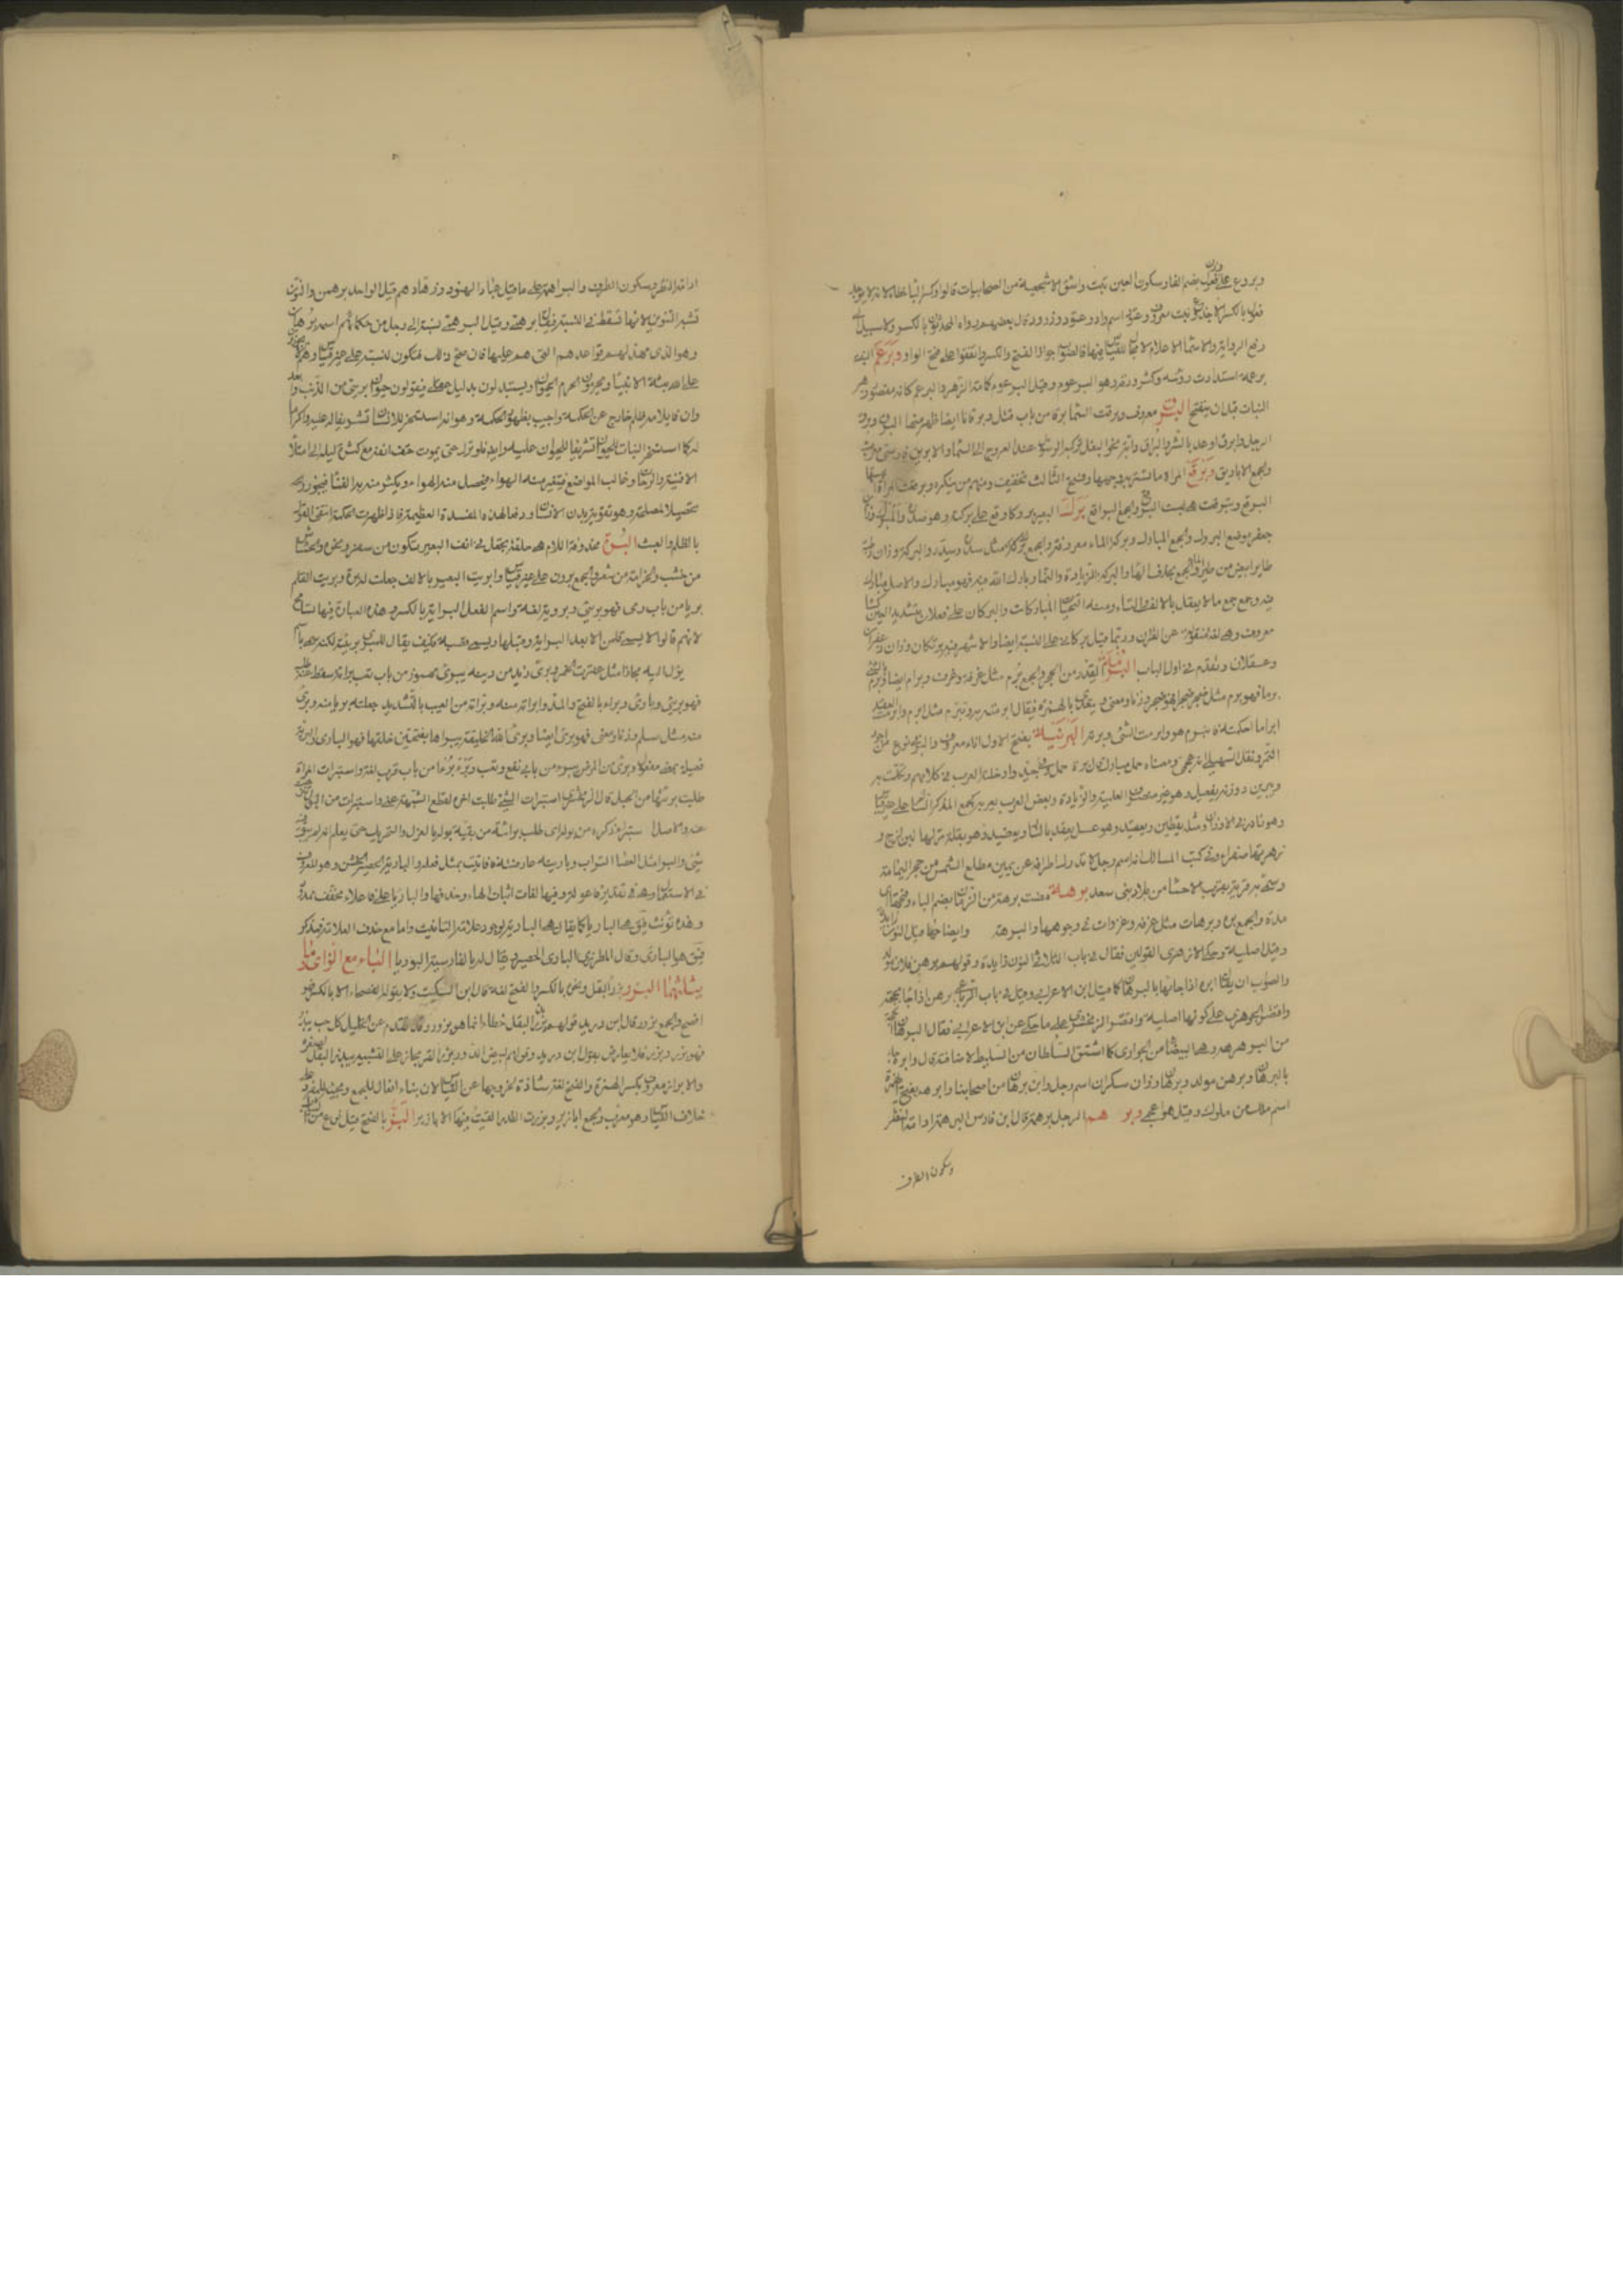 وبروع على فعول بفتح الفاء وسكون العين بنت واشق الاشجعية من الصحابيات قالوا وكسر الباء خطاء لانه لا يوجد
فعول بالكسر الا خروع نبت معروف وعتود اسم واد وعتور وذرود وقال بعضهم رواه المحدثون بالكسر ولا سبيل الى
دفع الرواية والاسماء الاعلام لا مجال للقياس فيها فالصواب جواز الفتح والكسر واتفقوا على فتح الواو وبرعم النبت
برعمة استدارت رؤسه وكثر ورقه وهو البرعوم وقيل البرعوم كمامة الزهر والبرعم كانه مقصور وزهر
النبات قبل ان يتفتح البرق معروف وبرقت السماء برقا من باب قتل وبرقانا ايضا ظهر منها البرق وبرق
الرجل وابرق اوعد بالشر والبراق دابة نحو البغل تركبه الرسل عند العروج الى السماء والابريق فارسي معرب
والجمع الاباريق وبرقع المراة ما تستر به وجهها وفتح الثالث تخفيف ومنهم من ينكره وبرقعت المراة البستها
البرقع وتبرقعت هي لبست البرقع والجمع البراقع برك البعير بروكا وقع على بركه وهو صدره والمبرك وزان
جعفر موضع البروك والجمع المبارك وبركة الماء معروفة والجمع برك مثل سدرة وسدر والبركة وزان رطبة
طاير ابيض من طير الماء والجمع بحذف الهاء والبركة الزيادة والنماء وبارك الله فيه فهو مبارك والاصل مبارك
فيه وجمع جمع ما لا يعقل بالالف والتاء ومنه التحيات المباركات والبركان على فعلان بتشديد العين كساء
معروف وهي لغة منقولة عن الفراء وربما قيل بركاني على النسبة ايضا والاشهر فيه برنكان وزان زعفران
وعسقلان وتقدم في اول الباب البرمة القدر من الحجر والجمع برم مثل غرفة وغرف وبرام ايضا وبرم بالشئ
برما فهو برم مثل ضجر ضجرا فهو ضجر وزنا ومعنى ويتعدى بالهمزة فيقال ابرمته به وتبرم مثل ابرم وابرمت العقد
ابراما احكمته فانبرم هو وابرمت الشئ دبرته البرنية بفتح الاول اناء معروف والبرني نوع من اجود
التمر ونقل السهيلي انه عجمي ومعناه حمل مبارك قال بر حمل وني جيد وادخلته العرب في كلامهم وتكلمت به
ويبرين وزنه يفعيل وهو غير منصرف للعلمية والزيادة وبعض العرب يعربه كجمع المذكر السالم على غير قياس
وهو نادر في الاوزان ومثله يقطين ويعقيد وهو عسل يعقد بالنار ويعضيد وهو بقلة مرة لها لبن لزج و
زهرتها صفراء وفي كتب المسالك انه اسم رملة لا تدرك اطرافه عن يمين مطلع الشمس من حجر اليمامة
وسمى به قرية بقرب الاحساء من بلاد بني سعد برهة مضت برهة من الزمان بضم الباء وفتحها اي
مدة والجمع بره وبرهات مثل غرفة وغرفات في وجوهها والبرهان وايضاحها قيل النون زايدة
وقيل اصلية وحكى الازهري القولين فقال في باب الثلاثي النون زايدة وقولهم برهن فلان مولد
والصواب ان يقال ابره اذا جاء بالبرهان كما قيل ابن الاعرابي وقيل في باب الرباعي برهن اذا جاء بحجته
واقتصر الجوهري على كونها اصلية واقتصر الزمخشري على ما حكى عن ابن الاعرابي فقال البرهان الحجة
من البرهرهة وهي البيضاء من الجواري كما اشتق السلطان من السليط لاضاءته قال وابره جاء
بالبرهان وبرهن مولد وبرهان وزان سكران اسم رجل وابن برهان من اصحابنا وابرهة بفتح الهمزة
اسم ملك من ملوك وقيل هو اعجمي وبرهم الرجل برهمة قال ابن فارس البرهمة ادامة النظر
وسكون الطرف
ادامة النظر وسكون الطرف والبراهمة على ما قيل عباد الهنود وزهادهم قيل الواحد برهمن والنون
تشبه التنوين لانها تسقط في النسبة فيقال برهمي وقيل البرهمي نسبة الى رجل من حكمائهم اسمه برهمان
وهو الذي مهد لهم قواعدهم التي هم عليها فان صح ذلك فتكون النسبة على غير قياس وهم لا يجوزون
على الله بعثة الانبياء ويحرمون لحوم الحيوان ويستدلون بدليل عقلي فيقولون حيوان بري من الذنب وا
وان ايلامه ظلم خارج عن الحكمة واجيب بظهور الحكمة وهو انه استسخر للانسان تشريفا له عليه واكراما
له كما استسخر النبات للحيوان تشريفا للحيوان عليه وايضا فلو ترك حتى يموت حتف انفه مع كثرة تناسله الى امتلاء
الافنية والرحاب وغالب المواضع فيتغير منه الهواء فيحصل منه الوباء ويكثر منه به الفناء فيجوز ذبحه
تحصيلا للمصلحة وهو تقوية بدن الانسان ودفعا لهذه المفسدة العظيمة فاذا ظهرت الحكمة انتفى القول
بالظلم والعبث البرة محذوفة اللام هي حلقة تجعل في انف البعير تكون من صفر ونحوه والخشاش
من خشب والخزامة من شعر والجمع برون على غير قياس وابريت البعير بالالف جعلت له برة وبريت القلم
بريا من باب رمى فهو بري وبروته لغة واسم الفعل البراية بالكسر وهذه العبارة فيها تسامح
لانهم قالوا لا يسمى قلما الا بعد البراية وقبلها ويسمى قصبة فكيف يقال للمبري بريته لكنه سمي باسم
يؤل اليه مجازا مثل عصرت الخمر وبرئ زيد من دينه يبرئ مهموز من باب تعب براءة سقط عنه طلبه
فهو برئ وبارئ وبراء بالفتح والمد وابراته منه وبراته من العيب بالتشديد جعلته بريا منه وبرئ
منه مثل سلم وزنا ومعنى فهو برئ ايضا وبرئ الله الخليقة يبراها بفتحتين خلقها فهو البارئ والبرية
فعيلة بمعنى مفعولة وبرئ من المرض يبرء من بابي نفع وتعب وبرؤ برءا من باب قرب لغة واستبرات المراة
طلبت براءتها من الحبل قال الزمخشري استبرات الشئ طلبت اخره لقطع الشبهة عني واستبرات من البول
عنه والاصل استبراء ذكره من بوله اي طلب براءته من بقية بوله بالعزل والتحريك حتى يعلم انه لم يبق فيه
شئ والبرا مثل العصا التراب وباريته عارضته فاتيت بمثل فعله والبارية الحصير الخشن وهو المعروف
في الاستعمال وهي في تقدير فاعولة وفيها لغات اثبات الهاء وحذفها والبارياء على فاعلاء مخفف ممدود
وهذه تؤنث فيقال هي البارياء كما يقال هي البارية لوجود علامة التانيث واما مع حذف العلامة فمذكر
فيقال هو الباري وقال المطرزي الباري الحصير ويقال له بالفارسية البوريا الباء مع الزاى وما
يثلثهما البزر بزر البقل ونحوه بالكسر والفتح لغة قال ابن السكيت ولا يقوله الفصحاء الا بالكسر فهو
افصح والجمع بزور قال ابن دريد قولهم بزر البقل خطاء انما هو بذر وقال تقدم عن الخليل كل حب يبذر
فهو بزر وبذر فلا يعارض بقول ابن دريد وقولهم لبيض الدود بزر القز مجاز على التشبيه ببزر البقل لصغره
والابزار معروف بكسر الهمزة والفتح لغة شاذة لخروجها عن القياس لان بناء افعال للجمع ومجيئه للمفرد على
خلاف القياس وهو معرب والجمع ابازير وبزرت القدر القيت فيها الابازير البز بالفتح قيل نوع من الثياب